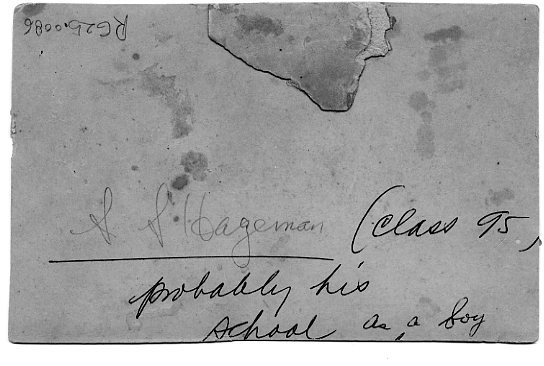 RG25.0086
S S Hageman (Class 95,
probably his
school as a boy